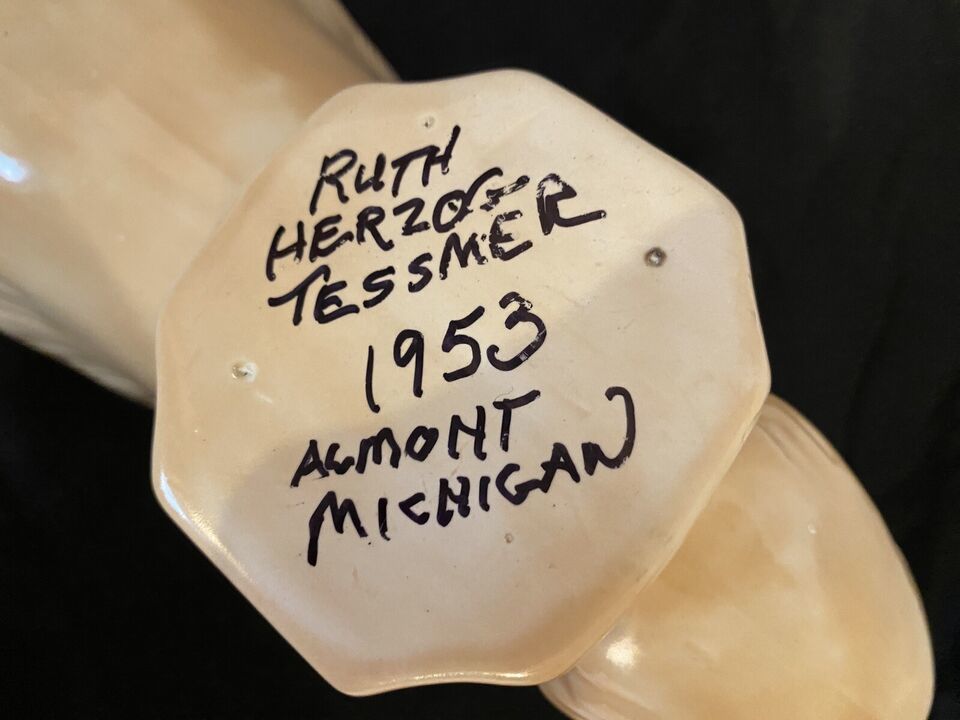 RUTH
HERZOG
TESSMER
1953
ALMONT
MICHIGAN